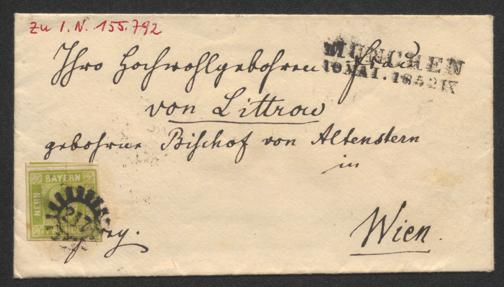 zu I.N. 155.792
MÜNCHEN
10 MAI. 1852 IV
Ihro Hochwohlgebohren Frau
von Littrow
gebohrne Bischof von Altenstern
in
Wien.
BAYERN
NEUN
217